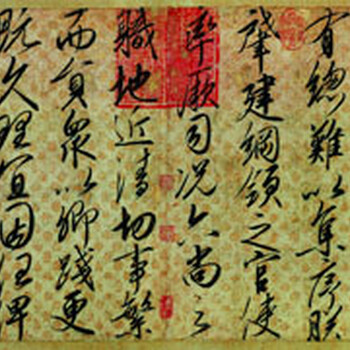 有總難以集序朕
肇建綱領之官使
率厥司況六尚之
職地近清切事繁
而員衆以卿踐更
既久理宜因任俾